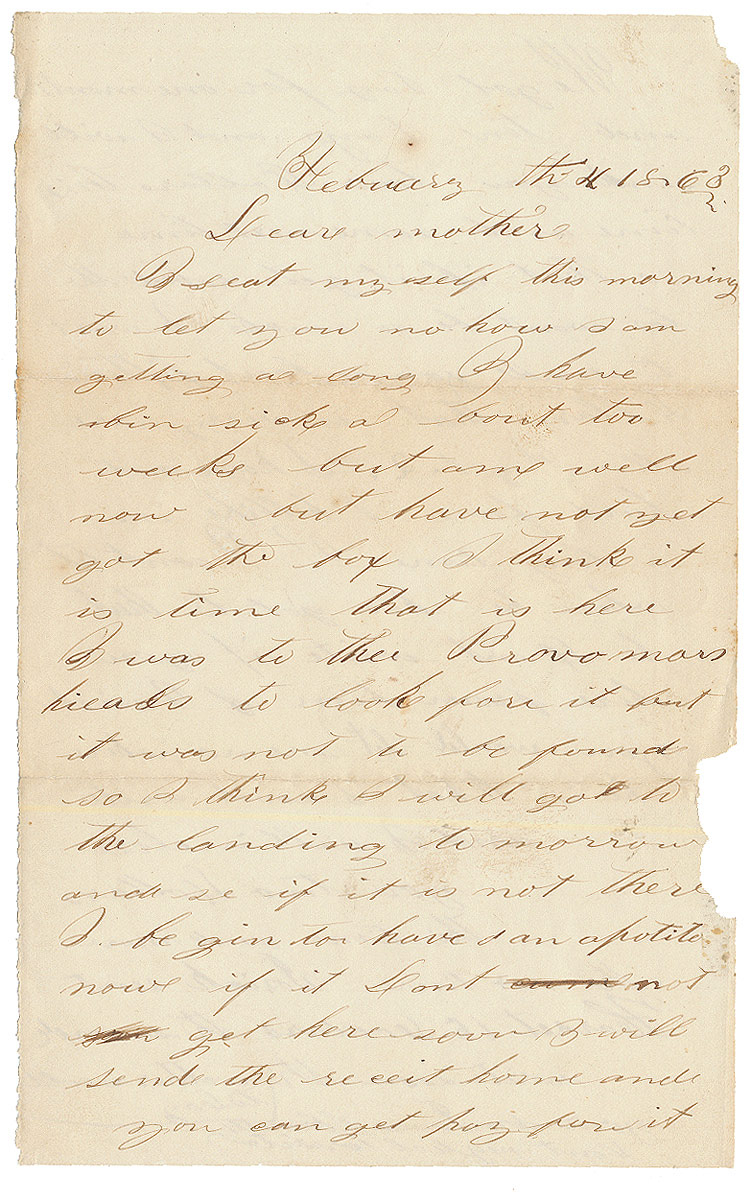 Febuary th 4 1863
Deare mother
I seat myself this morning
to let you no how I am
getting a long I have
bin sick a bout too
weeks but ame well
now but have not yet
got the box I think it
is time that is here
I was to thee Provo mars
heads to look fore it but
it was not to be found
so I think I will got to
the landing to morrow
and se if it is not there
I be gin to have an apotite
nowe if it dont not
get here soon I will
send the receit home ande
you can get pay fore it